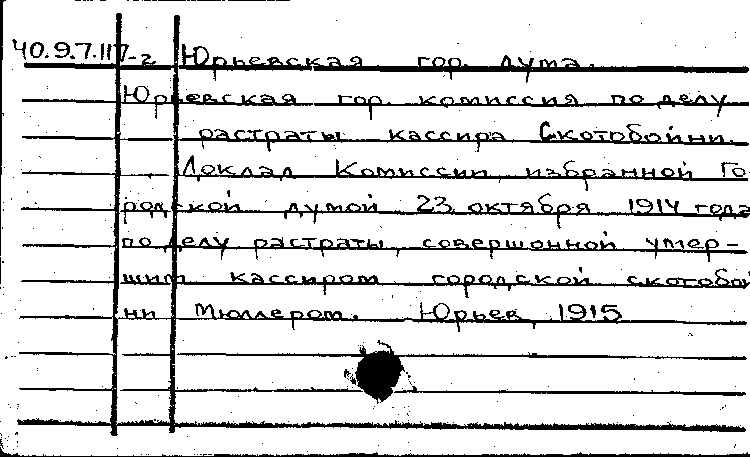 40.9.7.117-2 Юрьевская гор. дума.
Юрьевская гор. комиссия по делу
растраты кассира Скотобойни.
Доклад Комиссии, избранной Го
родской думой 23 октября 1914 года
по делу растраты, совершонной умер-
шим кассиром городской скотобой
ни Мюллером. Юрьев, 1915